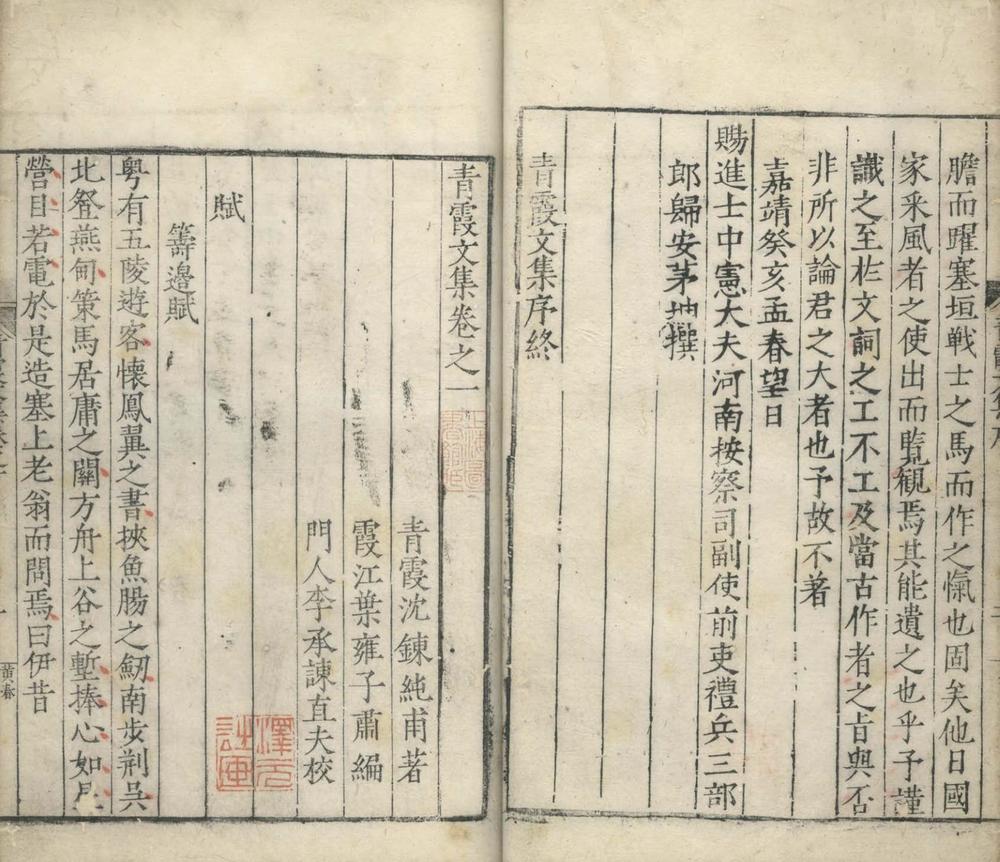 膽而躍塞垣戰士之馬而作之愾也固矣他日國
家采風者之使出而覧観焉其能遺之也乎予謹
識之至於文詞之工不工及當古作者之旨與否
非所以論君之大者也予故不著
嘉靖癸亥孟春望日
賜進士中憲大夫河南按察司副使前吏禮兵三部
郎歸安茅坤撰
青霞文集序終
青霞文集卷之一
青霞沈鍊純甫著
霞江葉雍子肅編
門人李承諫直夫校
賦
籌邊賦
粵有五陵遊客懐鳳翼之書挾魚腸之劒南步荆吳
北登燕甸策馬居庸之關方舟上谷之塹捧心如
營目若電於是造塞上老翁而問焉曰伊昔
黄春